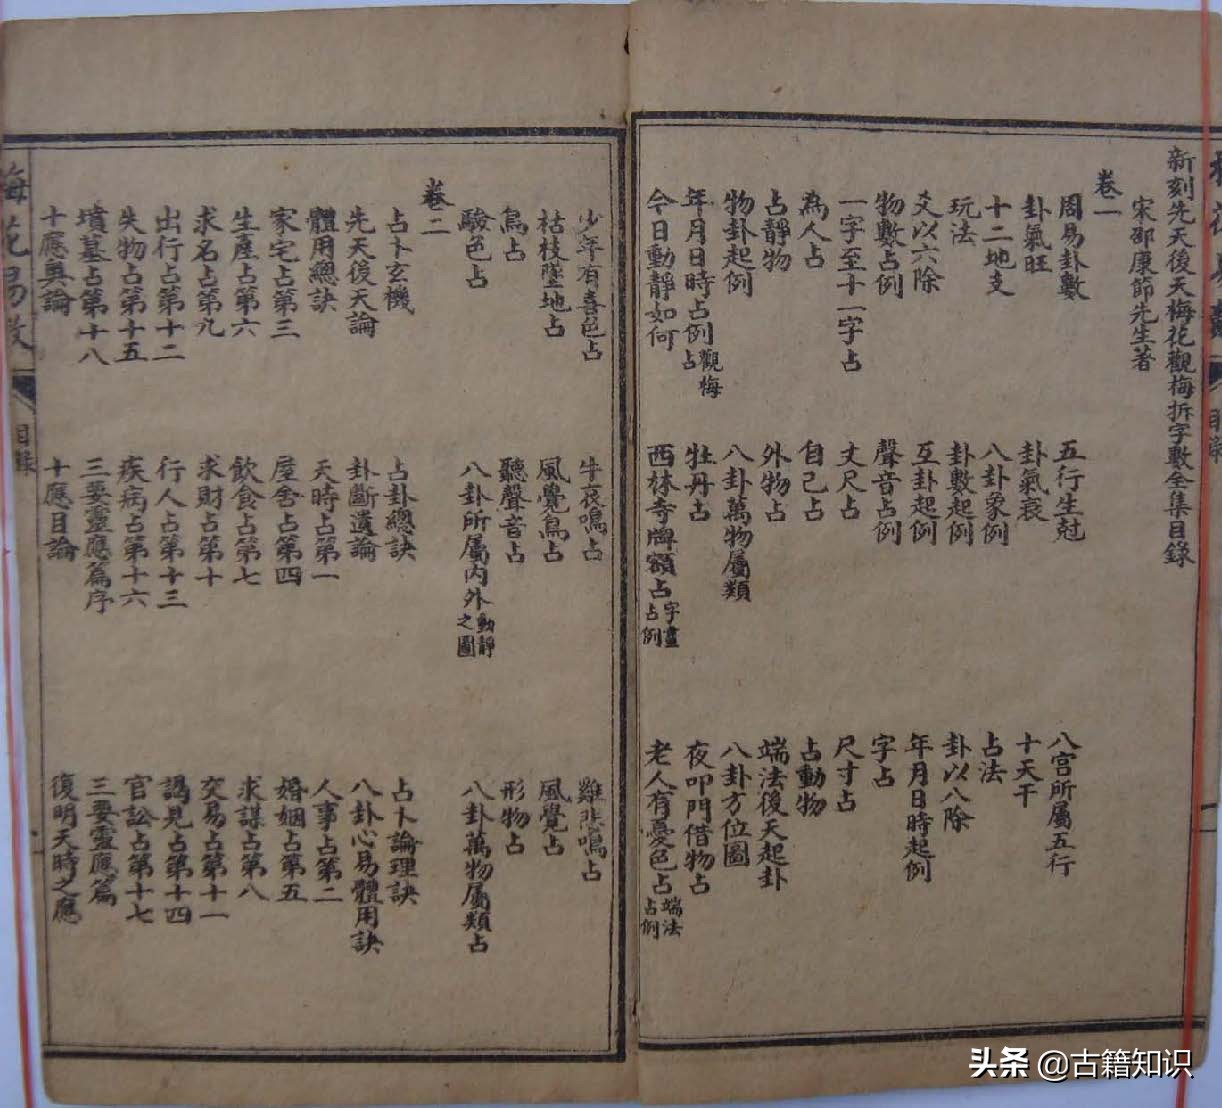 新刻先天後天梅花觀梅拆字數全集目錄
宋邵康節先生著
卷一
周易卦數 五行生尅 八宮所屬五行
卦氣旺 卦氣衰 十天干
十二地支 八卦象例 占法
玩法 卦數起例 卦以八除
爻以六除 互卦起例 年月日時起例
物數占例 聲音占例 字占
一字至十一字占 丈尺占 尺寸占
為人占 自己占 占動物
占靜物 外物占 端法後天起卦
物卦起例 八卦萬物屬類 八卦方位圖
年月日時占例觀梅占 牡丹占 夜叩門借物占
今日動靜如何 西林寺牌額占字畫占例 老人有憂色占端法占例
少年有喜色占 牛哀鳴占 雞悲鳴占
枯枝墜地占 風覺鳥占 風覺占
鳥占 聽聲音占 形物占
驗色占 八卦所屬內外動靜之圖 八卦萬物屬類占
卷二
占卜玄機 占卦總訣 占卜論理訣
先天後天論 卦斷遺論 八卦心易體用訣
體用總訣 天時占第一 人事占第二
家宅占第三 屋舍占第四 婚姻占第五
生產占第六 飲食占第七 求謀占第八
求名占第九 求財占第十 交易占第十一
出行占第十二 行人占第十三 謁見占第十四
失物占第十五 疾病占第十六 官訟占第十七
墳墓占第十八 三要靈應篇序 三要靈應篇
十應奧論 十應目論 復明天時之應
梅花易數
目錄
头条 @古籍知识